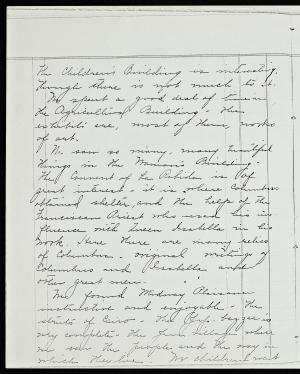 the Children's Building is interesting,
though there is not much to it.
We spent a good deal of time in
the Agricultural Building - the
exhibits are, most of them, works
of art.
We saw so many, many beautiful
things in the Woman's Building.
The Convent of La Rabida is of
great interest - it is where Columbus
obtained shelter, and the help of the
Franciscan Priest who used his in-
fluence with Queen Isabella in his
work. Here there are many relics
of Columbus - original writings of
Columbus and Isabella and
other great men.
We found Midway Plaisance
instructive and enjoyable - the
streets of Cairo - the
very complete - the Village where
we saw the people and the way in
which they live. We children went